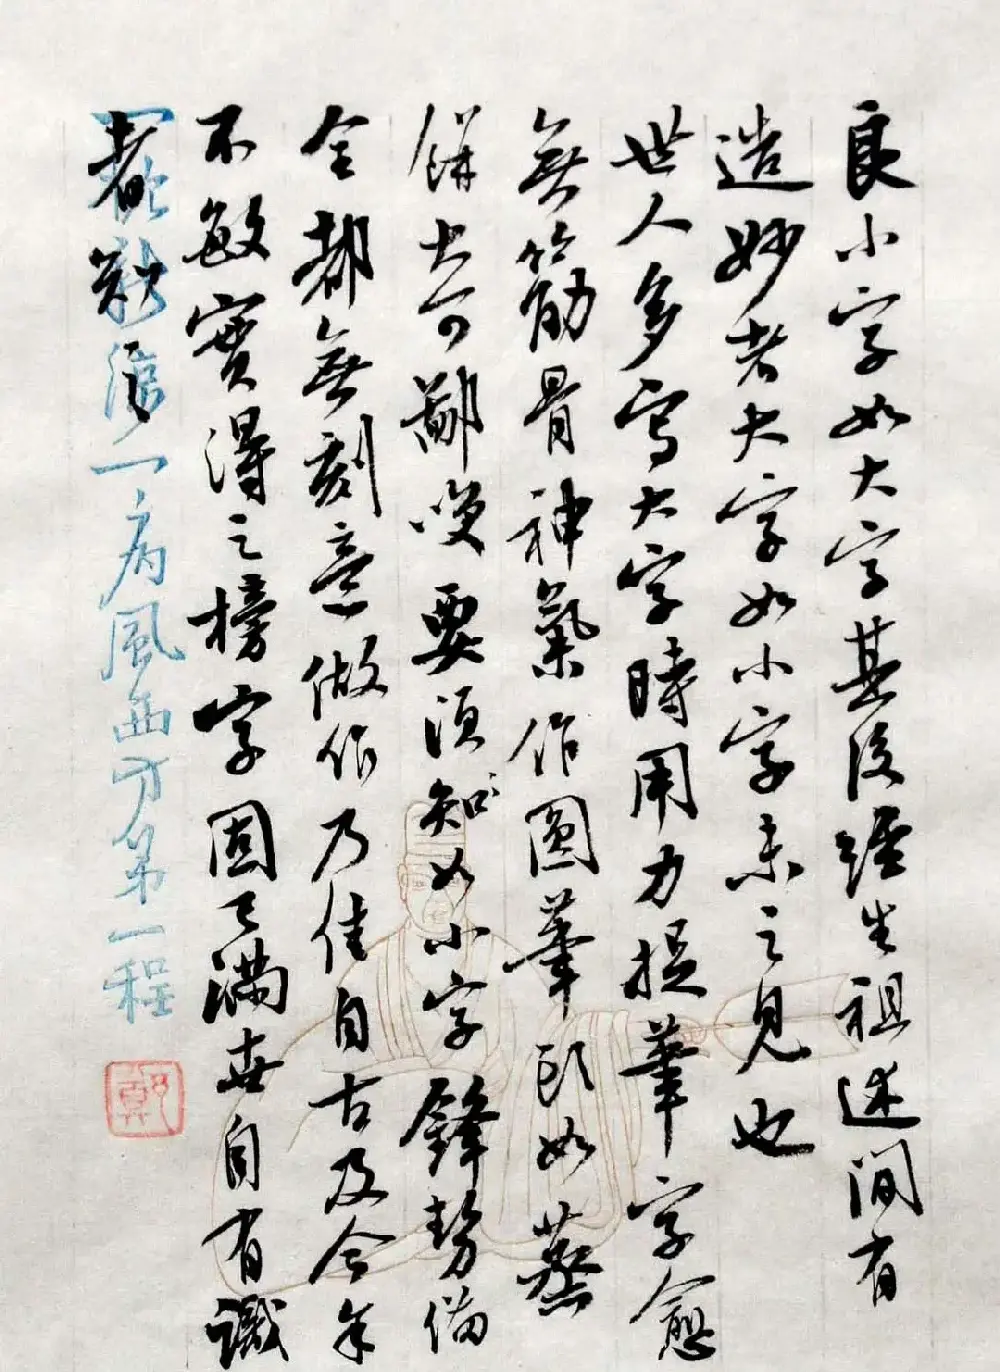 良小字如大字其後經生祖述間有
造妙者大字如小字未之見也
世人多寫大字時用力捉筆字愈
無筋骨神氣作圓筆頭如蒸
餅大可鄙唉要須知如小字鋒勢備
全都無刻意做作乃佳自古及今余
不敏實得之榜字固已滿世自有識
者知之一病風西方第一程